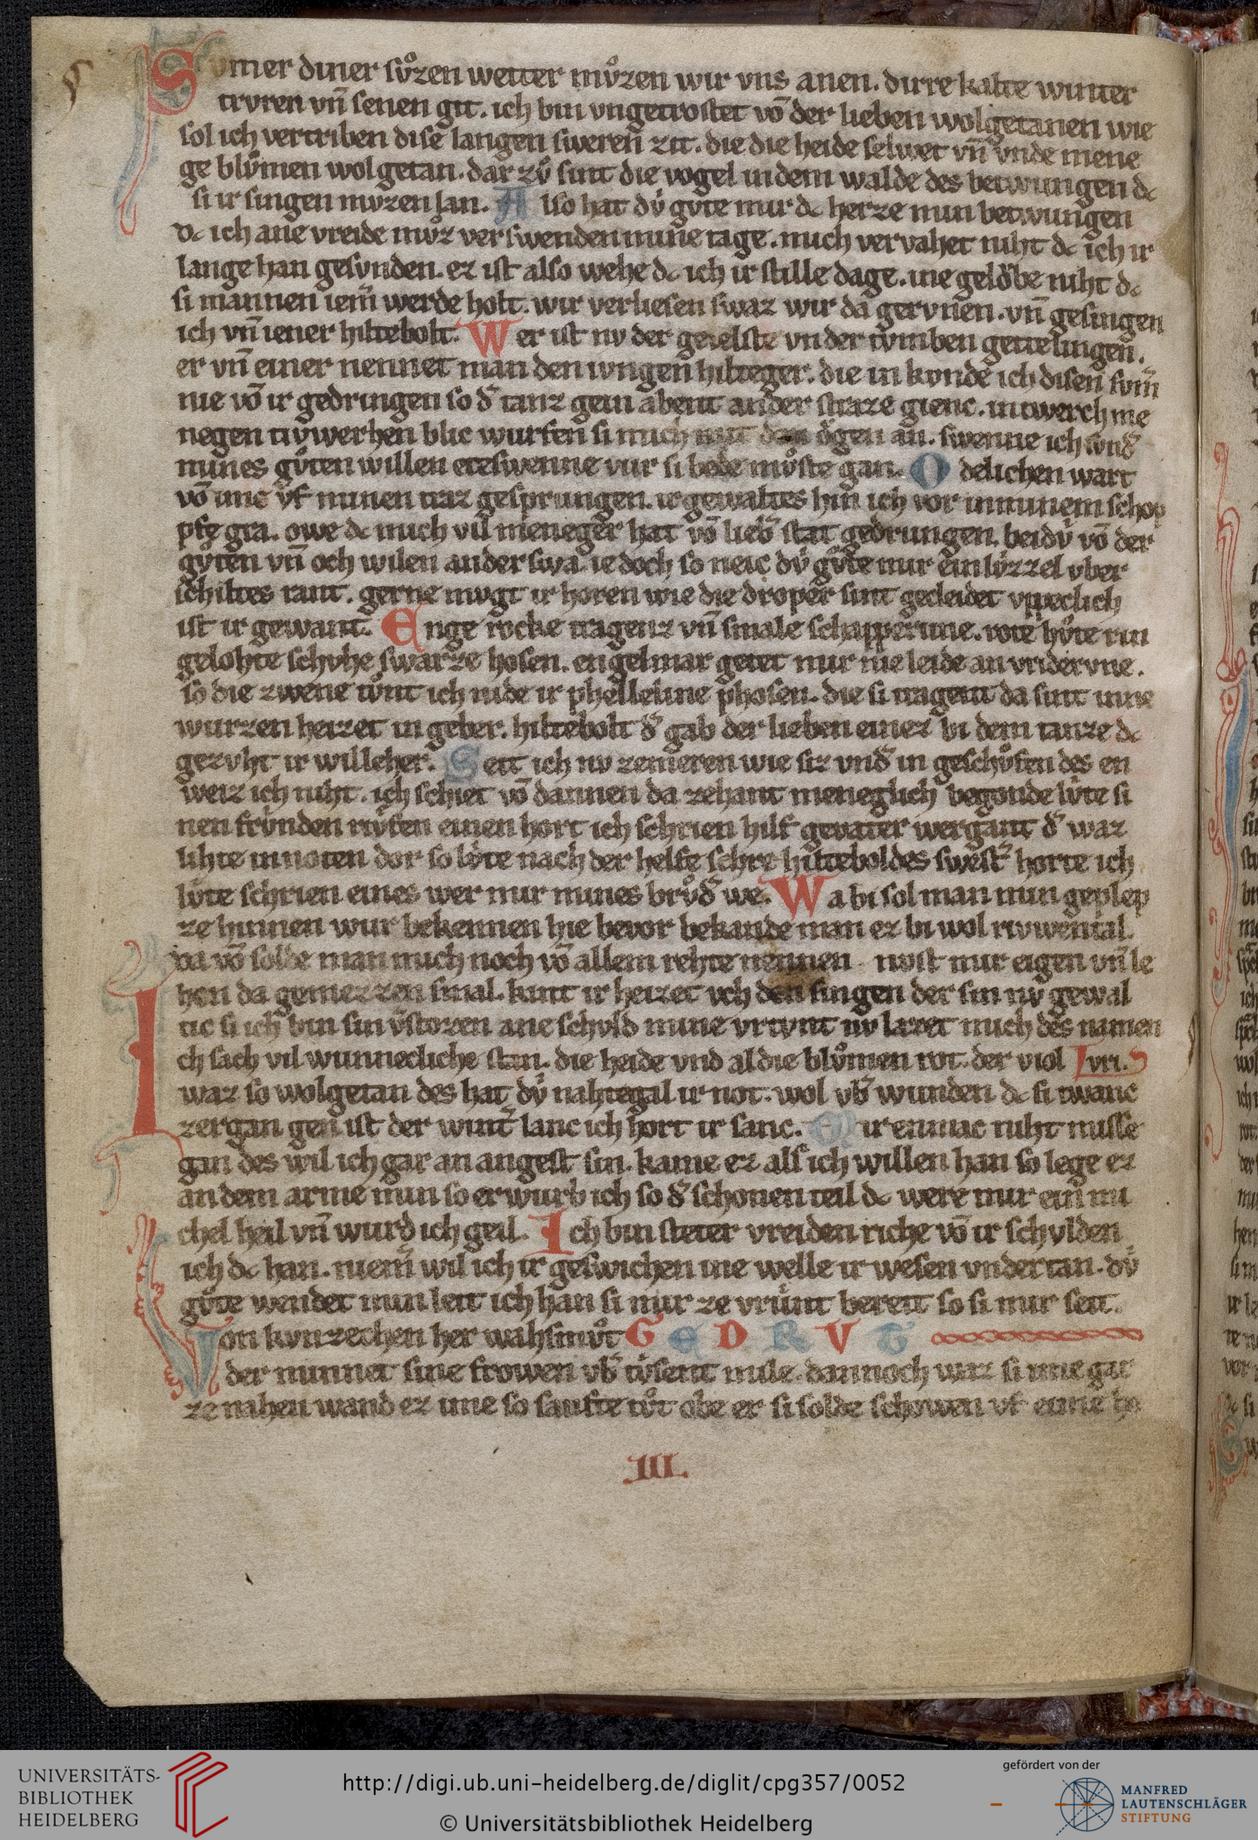 Svmer diner svͦzen weter mvͦzen wir vns anen. dirre kalte winter
trvren vn̄ senen git. ich bin vngetrostet vō der lieben wolgetanen wie
sol ich vertriben dise langen sweren zit. die die heide selwet vn̄ vnde mene
ge blvͦmen wolgetan. dar zvͦ sint die vogel in dem walde des betwungen dc
si ir singen mvzen lan. Also hat dv́ gvͦte mir dc herze min betwungen
dc ich ane vreide mvͦz verswenden mine tage. mich vervahet niht dc ich ir
lange han gesvnden. ez ist also wehe dc ich ir stille dage. ine gelöbe niht dc
si mannen iem̄ werde holt. wir verliesen swaz wir da gervnen. vn̄ gesingen
ich vn̄ iener hiltebolt. Wer ist nv der geielste vnder tvmben getelingen.
er vn̄ einer nennet man den ivngen hilteger. die in kvnde ich disen svm̄
nie vō ir gedringen so d' tanz gein abent an der straze gienc. intwerch me
negen twerhen blic wurfen si mich mit den ögen an. swenne ich svnd'
mines gvͦten willen eteswenne vúr si bede mvͦste gan. Odelichen wart
vō ime vf minen traz gesprungen. ir gewaltes bin ich vor in minem schop
pfe gra. owe dc mich vil meneger hat vō lieb' stat gedrungen. beidv́ vō der
gvͦten vn̄ och wilen anderswa. iedoch so neic dv́ gvͦte mir ein lv́zzel vber
schiltes rant. gerne mvgt ir horen wie die dröper sint gecleidet vppeclich
ist ir gewant. Enge röcke tragenz vn̄ smale schapperune. rote hvͦte rin
gelohte schvhe swarze hosen. engelmar getet mir nie leide an vridervne.
so die zwene tvͦnt ich nide ir phelleline phosen. die si tragent da sint inne
wurzen heizet ingeber. hiltebolt d' gab der lieben einez bi dem tanze dc
gezvht ir willeher. Seit ich nv ze mieren wie siz vnd' in geschvͦfen des en
weiz ich niht. ich schiet vō dannen da zehant meneglich begonde lvte si
nen frv́nden rvͦfen einen hort ich schrien hilf gevater wergant d' waz
lihte in noten dor so lvte nach der helfe schre hilteboldes swest' horte ich
lvte schrien eines wer mir mines brvͦd' we. Wa bi sol man min geplep
ze hinnen wur bekennen hie bevor bekande man ez bi wol rivwental
da vō solde man mich noch vō allem rehte nennen nvst mir eigen vn̄ le
hen da gemezzen smal. kint ir heizet vch den singen der sin nv gewal
tic si ich bin sin v́stozen ane schvld mine vrivnt nv lazet mich des namen
Ich sach vil wunnecliche stan. die heide vnd al die blvͦmen rot. der viol vri.
waz so wolgetan des hat dv́ nahtegal ir not. wol vb' wunden dc si twanc
zergan gen ist der wint' lanc ich hort ir sanc. Mir enmac niht misse
gan des wil ich gar an angest sin. kame ez als ich willen han so lege er
an dem arme min so erwurb ich so d' schonen teil dc were mir ein mi
chel heil vn̄ wurd ich geil. Ich bin steter vreiden riche vō ir schvlden
ich dc han. niem̄ wil ich ir geswichen ine welle ir wesen vndertan. dv́
gvͦte wendet min leit ich han si mir ze vriunt bereit so si mir seit.
GEDRVT
Von kvnzechen her wahsmvͦt
der minnet sine frowen vb' tvsent mile. dannoch waz si ime gar
ze nahen wand ez ime so sanfte tvͦt obe er si solde schowen vf eime ho
III.
UNIVERSITÄTS-
BIBLIOTHEK
HEIDELBERG
http://digi.ub.uni-heidelberg.de/diglit/cpg357/0052
© Universitätsbibliothek Heidelberg
gefördert von der
MANFRED
LAUTENSCHLÄGER
STIFTUNG